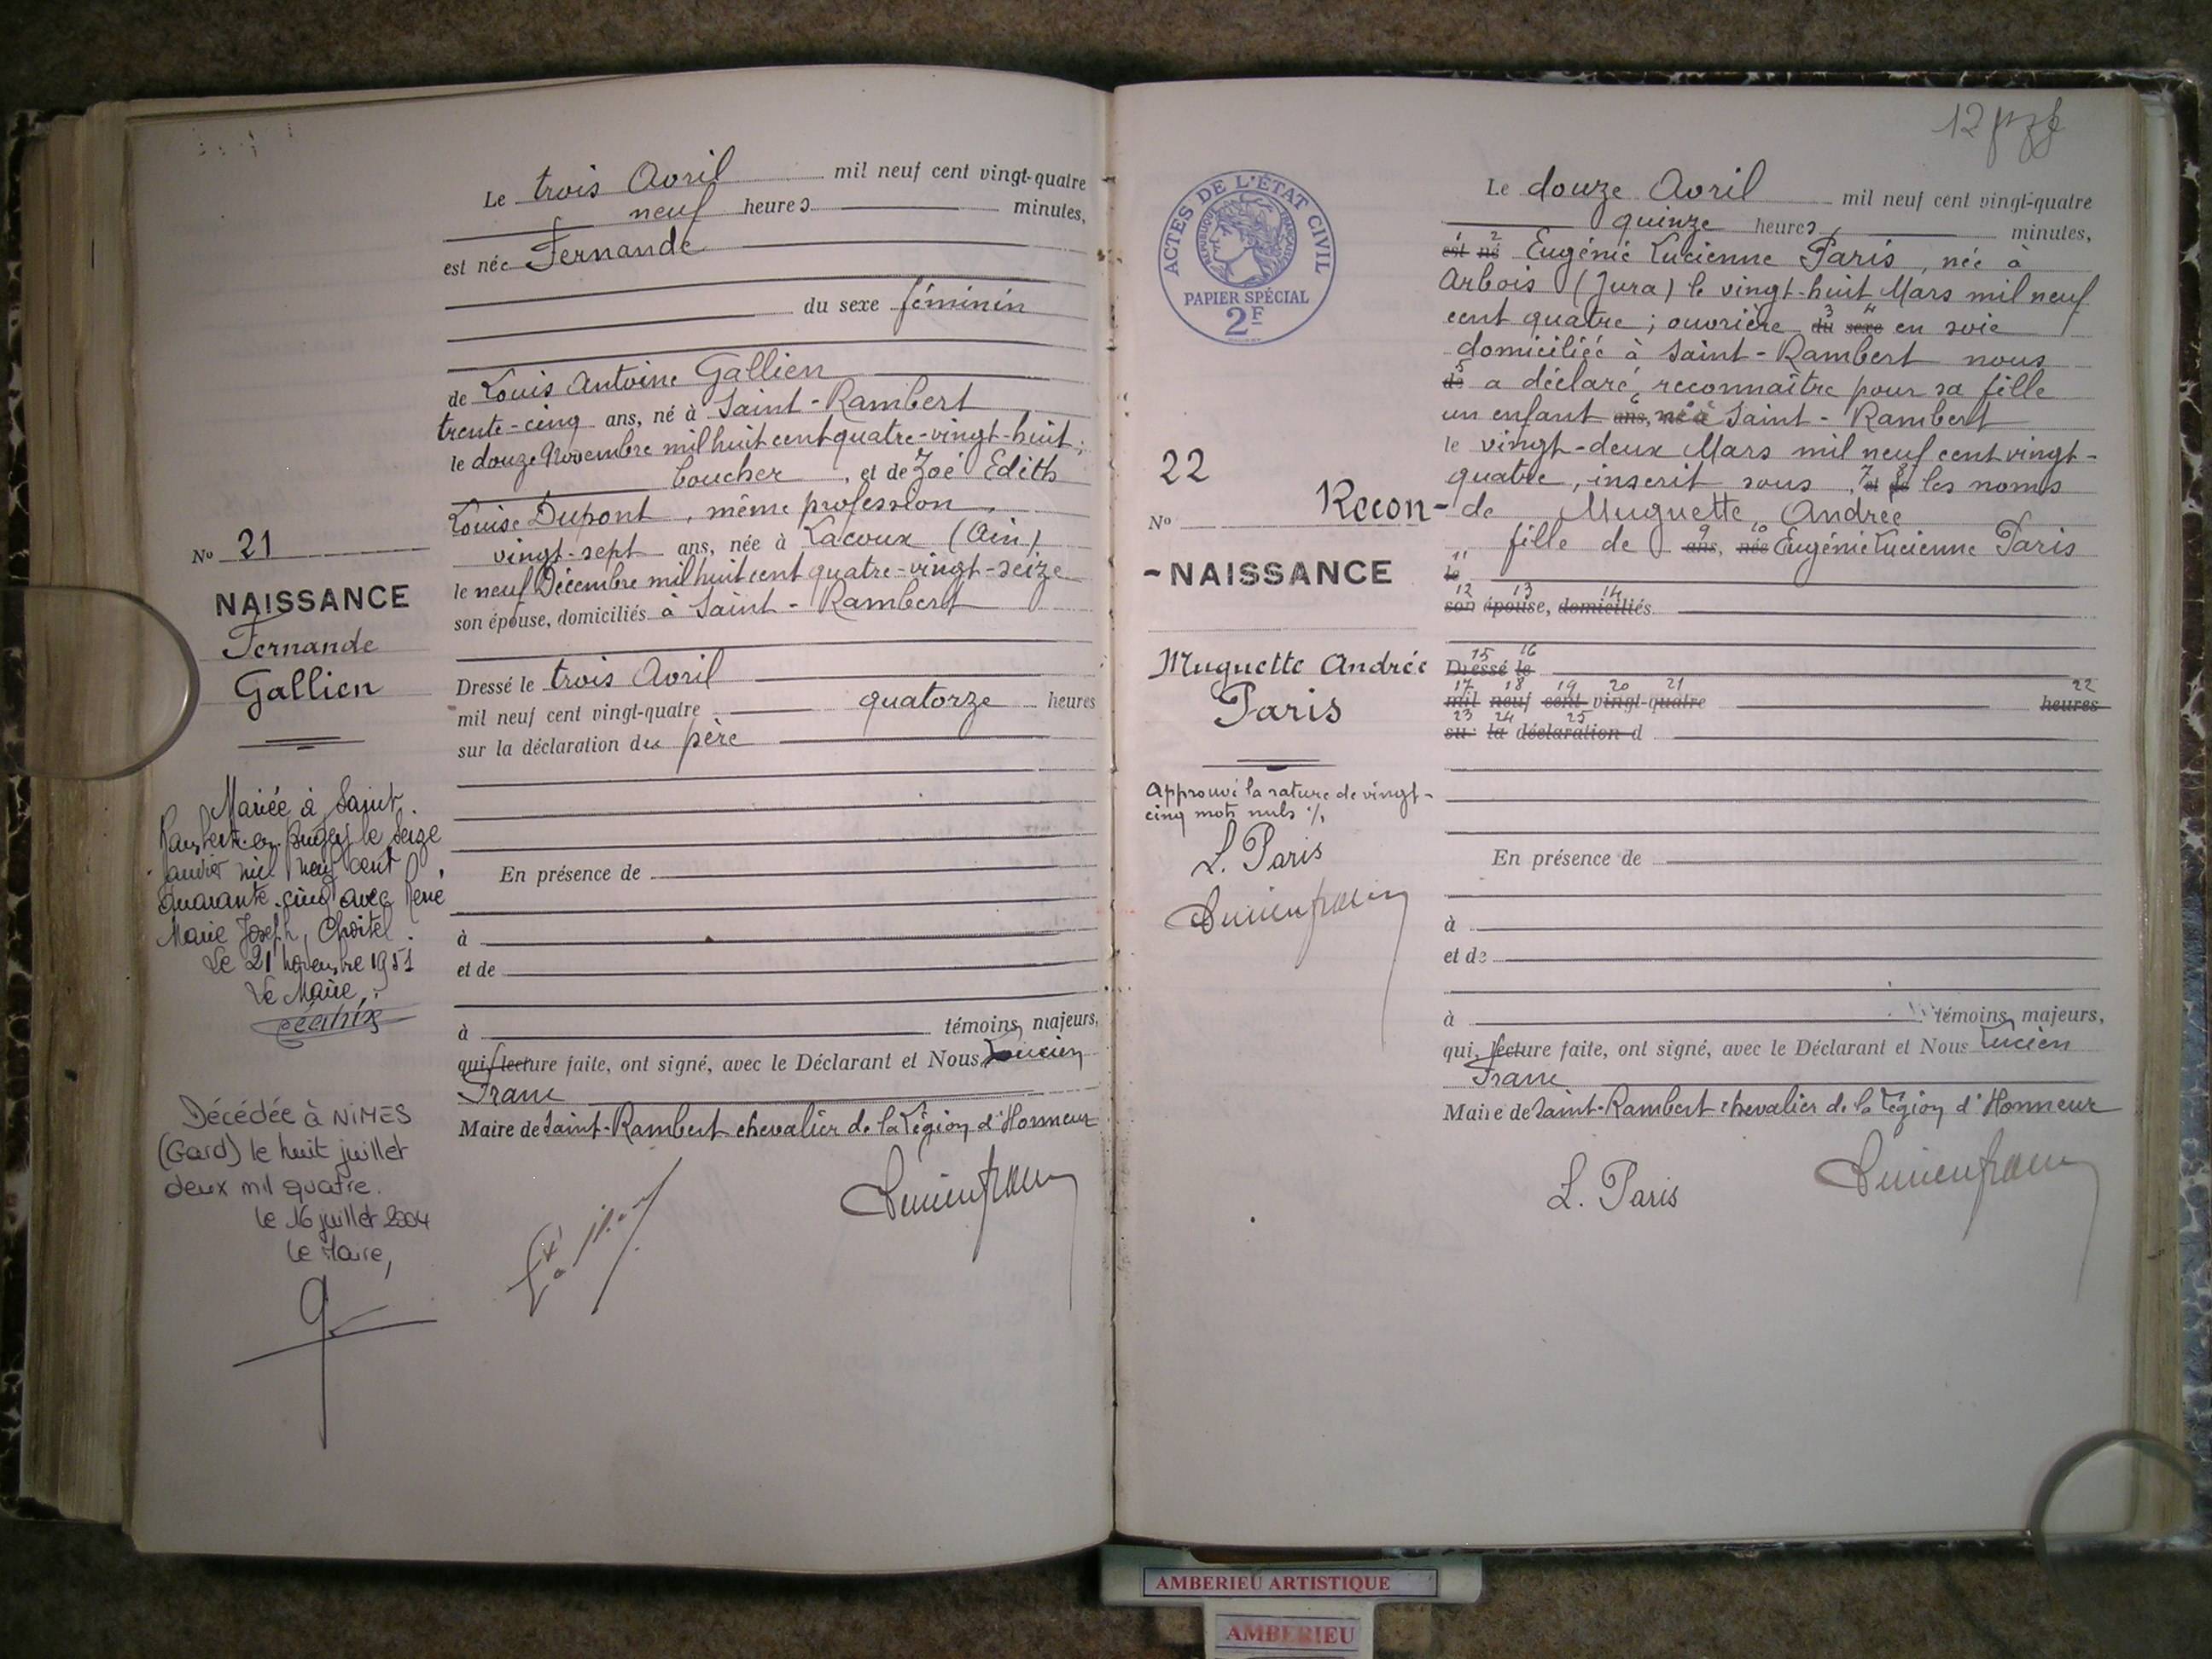 Le trois Avril mil neuf cent vingt-quatre
neuf heures minutes,
est née Fernande
du sexe féminin
de Louis Antoine Gallien
trente-cinq ans, né à Saint-Rambert
le douze Novembre mil huit cent quatre-vingt-huit;
boucher, et de Zoé Edith
Louise Dupont, même profession,
vingt-sept ans, née à Lacoux (Ain)
le neuf Décembre mil huit cent quatre-vingt-seize
son épouse, domiciliés à Saint-Rambert
Dressé le trois Avril
mil neuf cent vingt-quatre quatorze heures
sur la déclaration du père
En présence de
à
et de
à témoins majeurs,
qui, lecture faite, ont signé, avec le Déclarant et Nous Lucien
Franc
Maire de Saint-Rambert chevalier de la Légion d'Honneur
No 21
NAISSANCE
Fernande
Gallien
Mariée à Saint
Rambert-en-Bugey le seize
janvier mil neuf cent
quarante-cinq avec René
Marie Joseph
Le 21 novembre 1951
Le Maire,
Décédée à NîMES
(Gard) le huit juillet
deux mil quatre.
le 16 juillet 2004
Le Maire,
12
ACTES DE L'ÉTAT CIVIL
RÉPUBLIQUE FRANÇAISE
PAPIER SPÉCIAL
2F
22
No Recon-
-NAISSANCE
Muguette Andrée
Paris
Approuvé la rature de vingt-
cinq mots nuls ./.
L. Paris
Le douze Avril mil neuf cent vingt-quatre
quinze heures, minutes,
1 2
est né Eugénie Lucienne Paris, née à
Arbois (Jura) le vingt-huit Mars mil neuf
3 4
cent quatre; ouvrière du sexe en soie
domiciliée à Saint-Rambert nous
5
de a déclaré reconnaître pour sa fille
6
un enfant ans, né à Saint-Rambert
le vingt-deux Mars mil neuf cent vingt-
7 8
quatre, inscrit sous , et de les noms
de Muguette Andrée
9 10
fille de ans, née Eugénie Lucienne Paris
11
le
12 13 14
son épouse, domiciliés
15 16
Dressé le
17 18 19 20 21 22
mil neuf cent vingt-quatre heures
23 24 25
sur la déclaration d
En présence de
à
et de
à témoins majeurs,
qui, lecture faite, ont signé, avec le Déclarant et Nous Lucien
Franc
Maire de Saint-Rambert chevalier de la Légion d'Honneur
L. Paris
AMBERIEU ARTISTIQUE
AMBERIEU